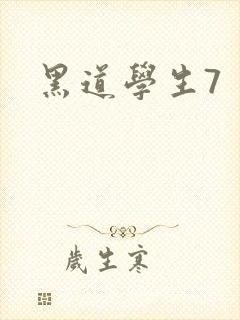 黑道學生7
歲生寒